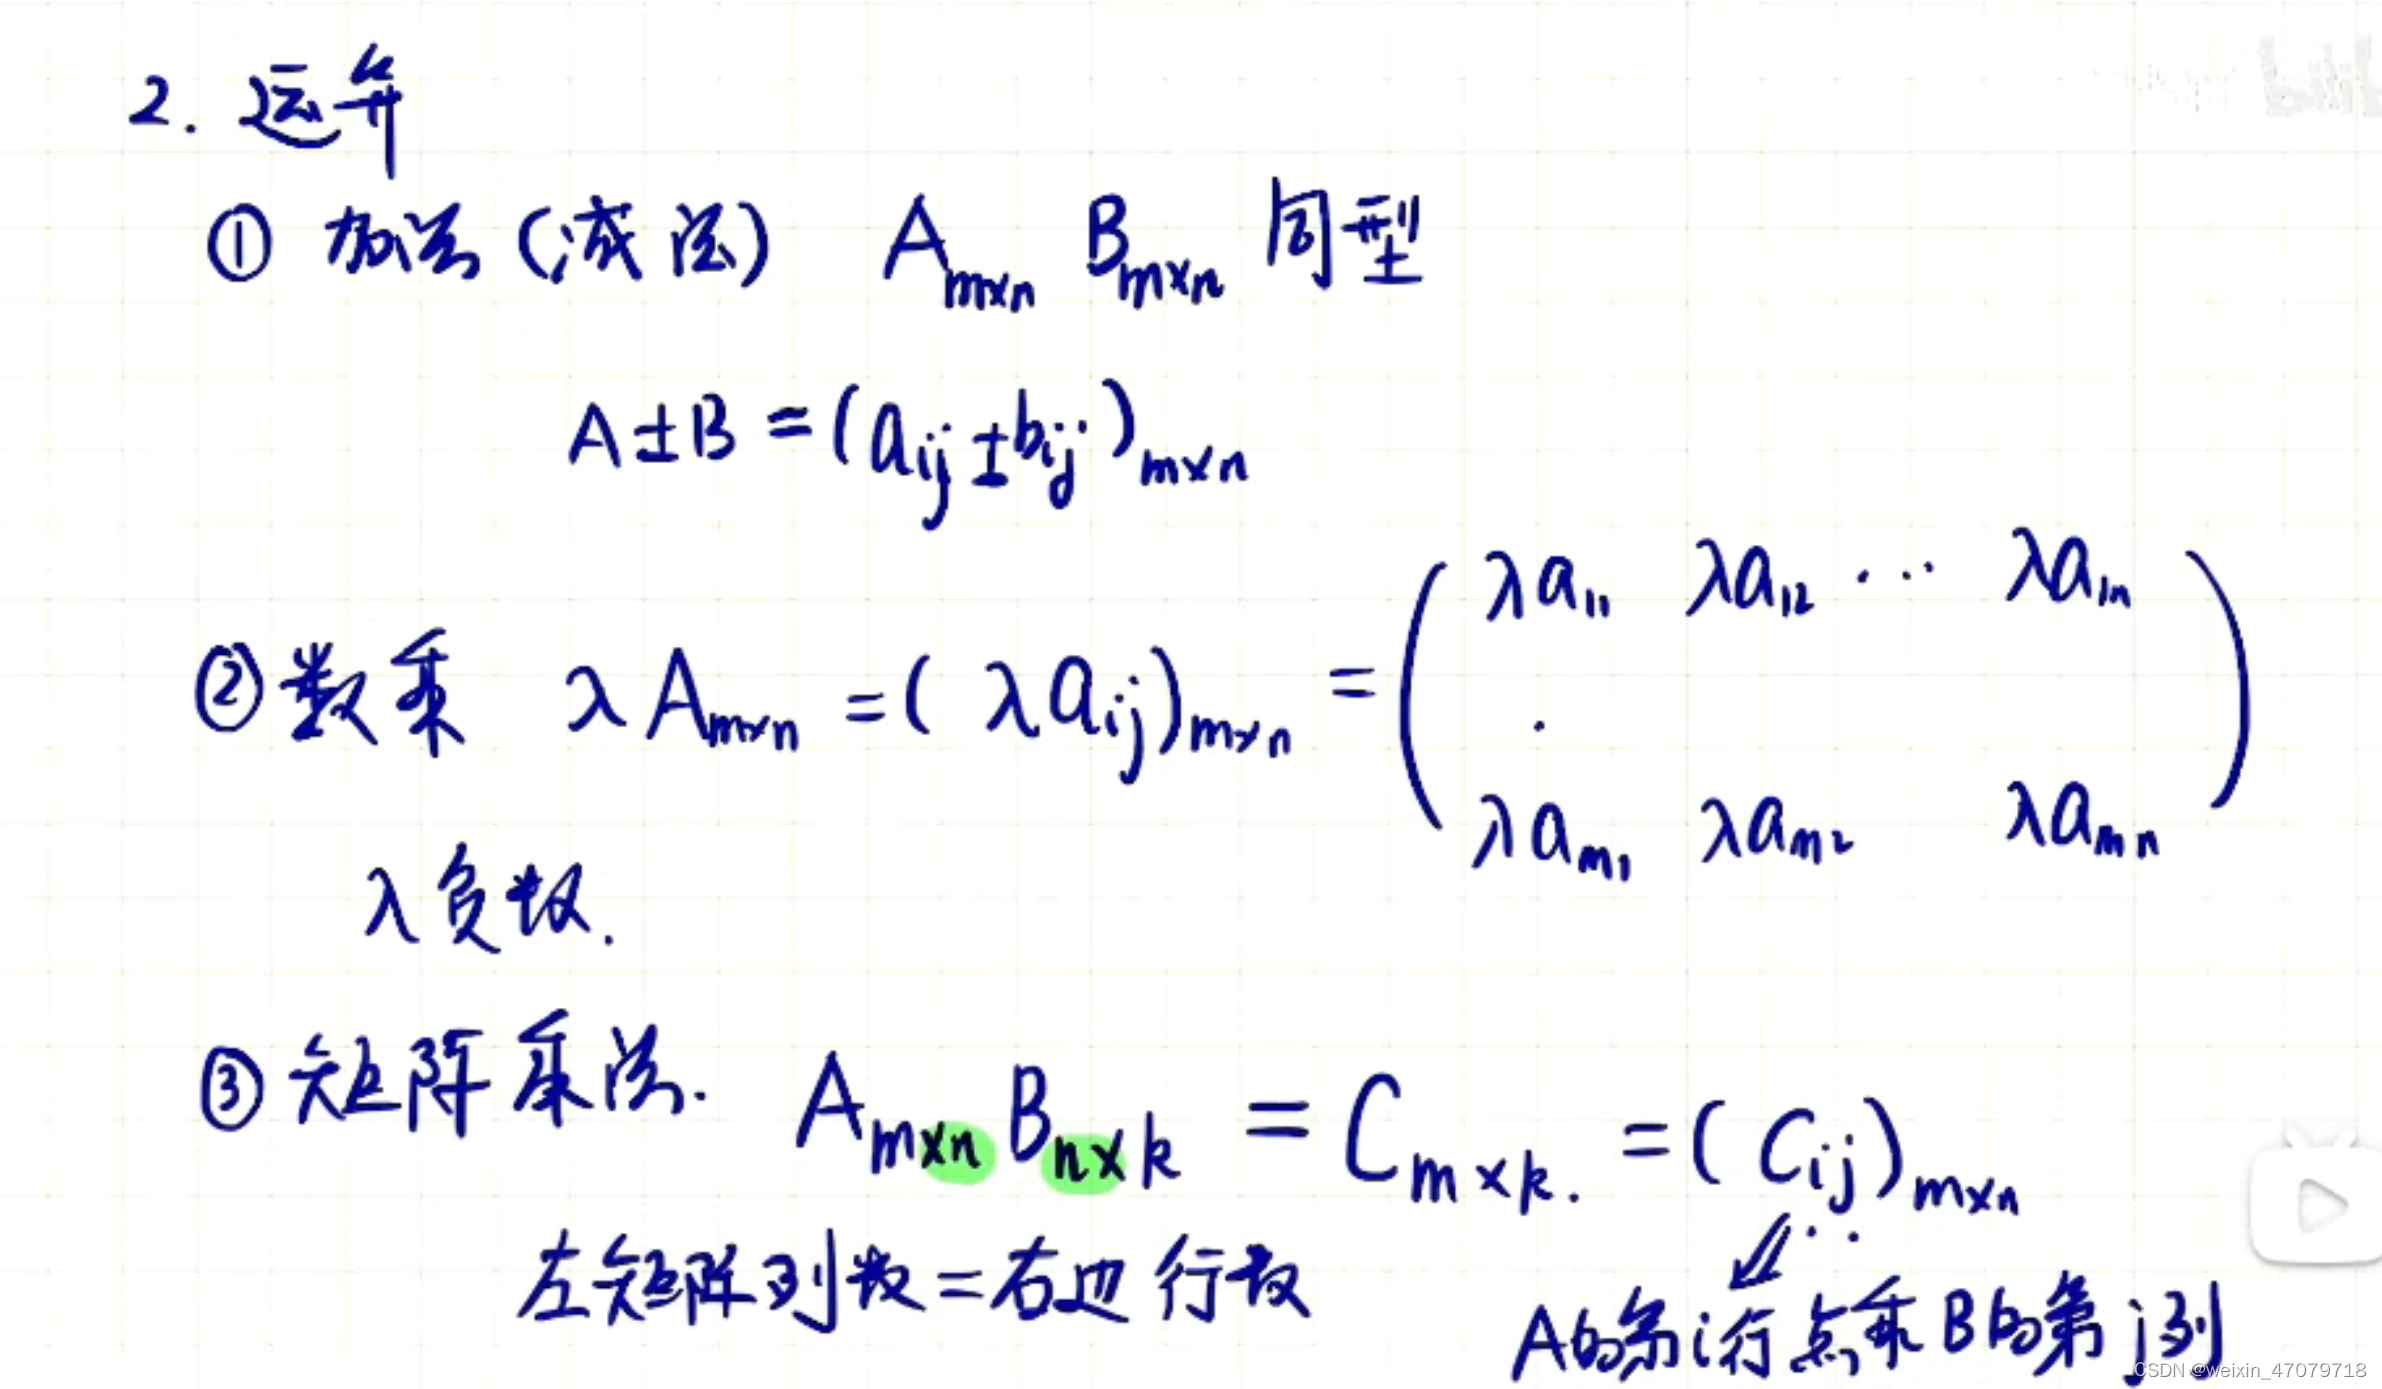 2. 运算
① 加法(减法) A_{m×n} B_{m×n} 同型
A±B = (a_{ij} ± b_{ij})_{m×n}
② 数乘 λA_{m×n} = (λa_{ij})_{m×n} = ( λa_{11} λa_{12} ... λa_{1n}
.
λa_{m1} λa_{m2} λa_{mn} )
λ负数.
③ 矩阵乘法. A_{m×n} B_{n×k} = C_{m×k}. = (C_{ij})_{m×n}
左矩阵列数=右边行数
A的第i行点乘B的第j列
CSDN @weixin_47079718